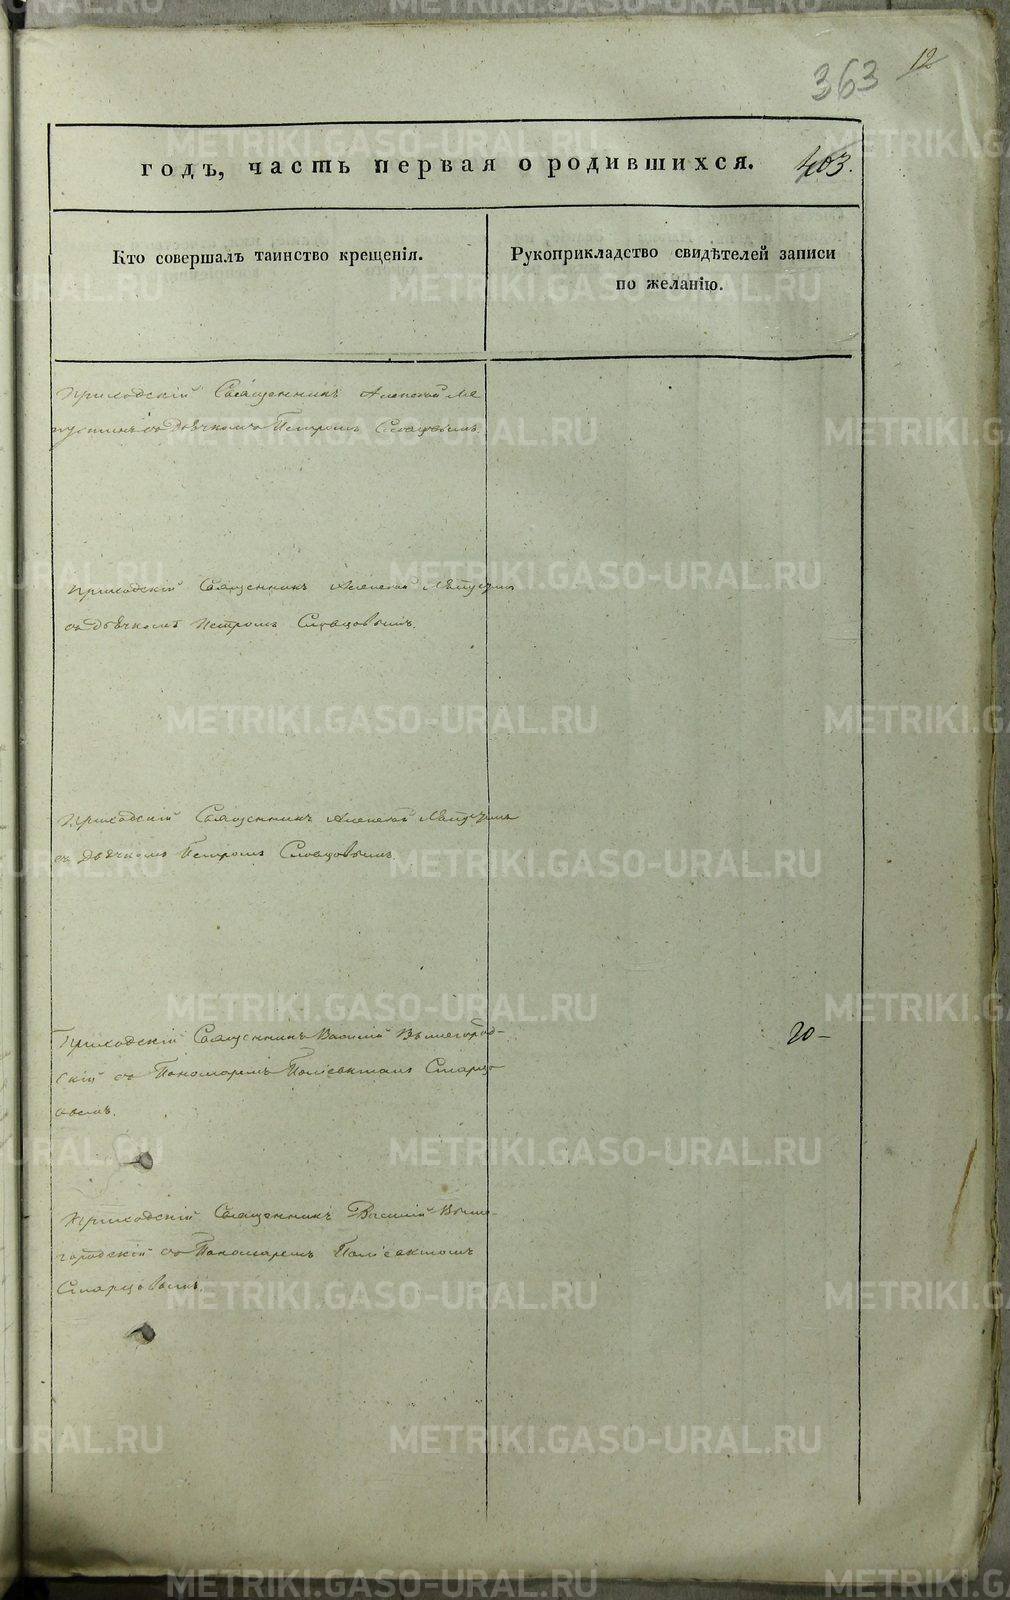 12
363
годъ, часть первая о родившихся. 403.
Кто совершалъ таинство крещенія.
Рукоприкладство свидѣтелей записи
по желанію.
Приходскій Священникъ Алексѣй
съ Дьячкомъ Петромъ Словцовымъ.
Приходскій Священникъ Алексѣй
съ Дьячкомъ Петромъ Словцовымъ.
Приходскій Священникъ Алексѣй
съ Дьячкомъ Петромъ Словцовымъ.
Приходскій Священникъ Василій Вышегород-
скій съ Пономаремъ Поліевктомъ Старцо-
вымъ.
20–
Приходскій Священникъ Василій Выше-
городскій съ Пономаремъ Поліевктомъ
Старцовымъ.
METRIKI.GASO-URAL.RU